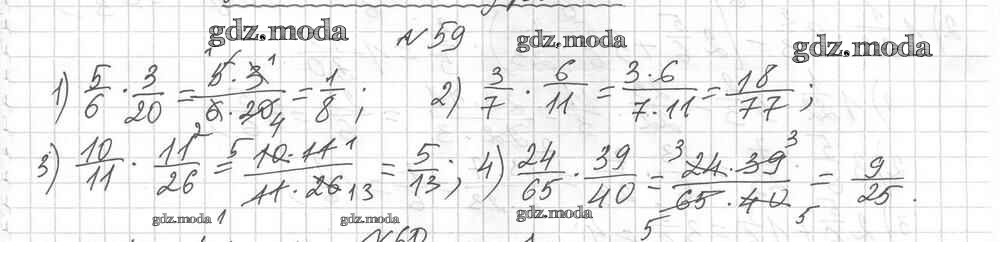 gdz.moda N 59 gdz.moda gdz.moda
1) 5/6 · 3/20 = 5·3/6·20 = 1/8; 2) 3/7 · 6/11 = 3·6/7·11 = 18/77;
3) 10/11 · 11/26 = 10·11/11·26 = 5/13; 4) 24/65 · 39/40 = 24·39/65·40 = 9/25.
gdz.moda gdz.moda gdz.moda
N60